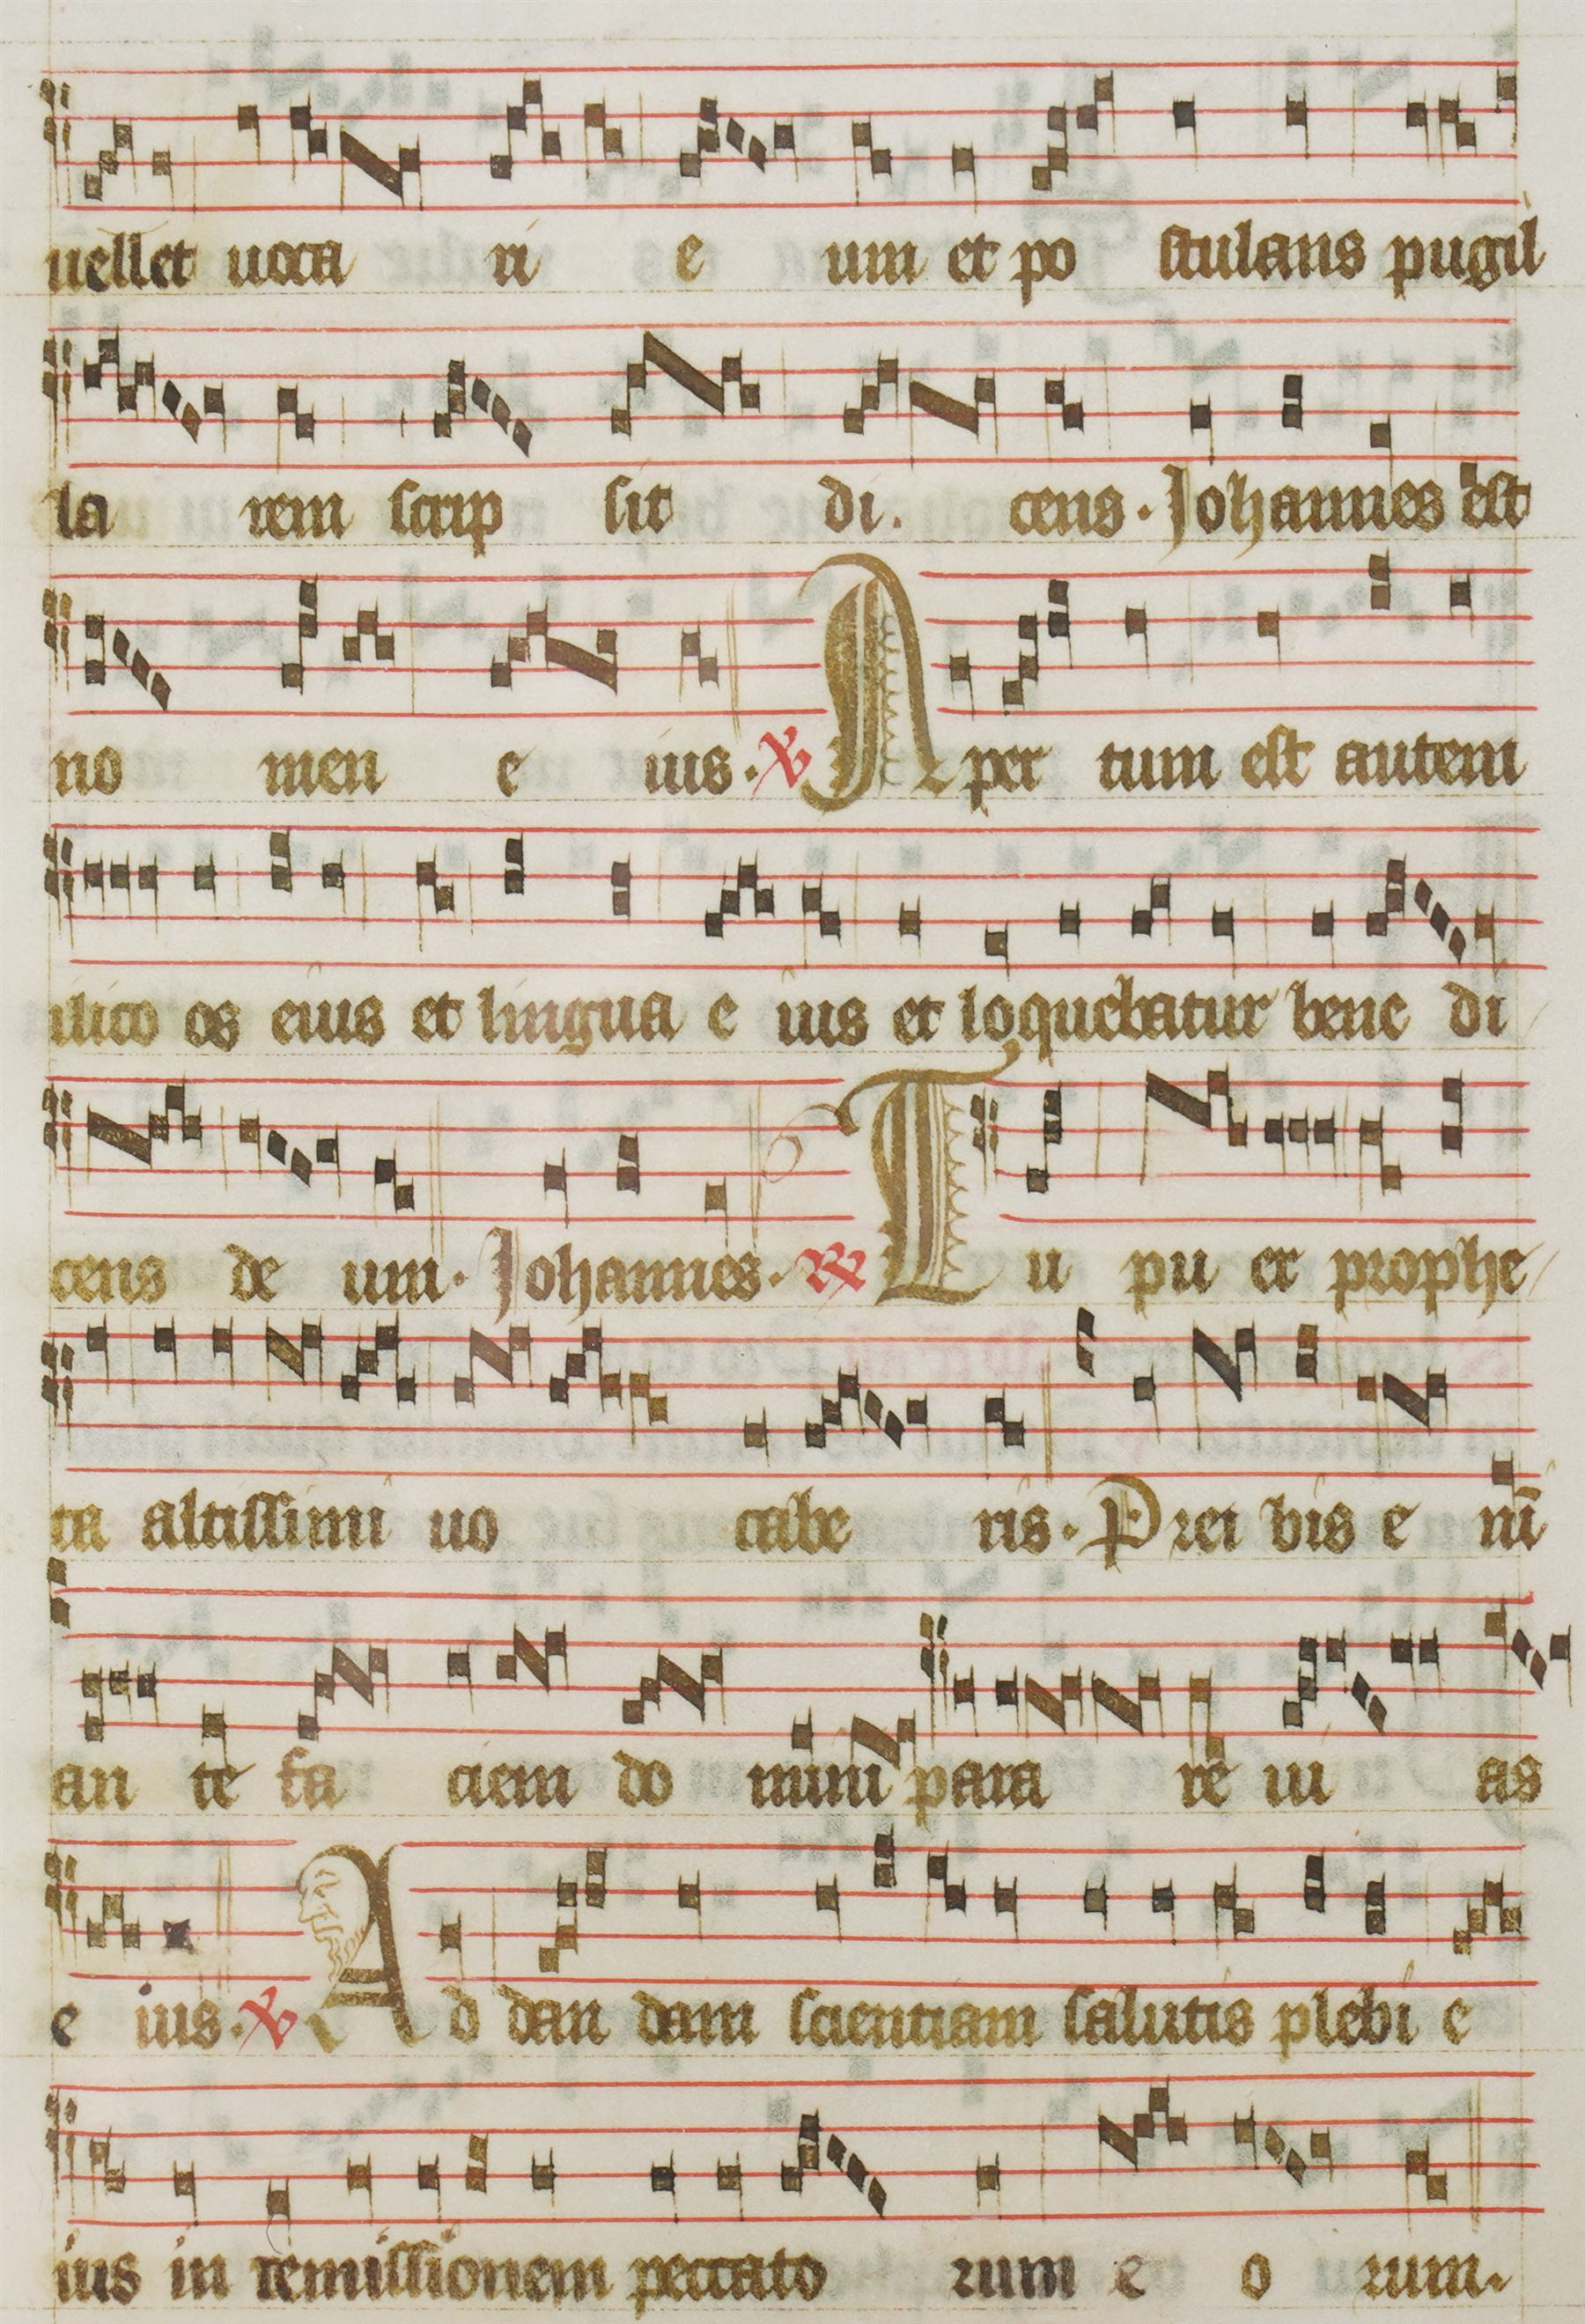 uellet uoca ri e um et po stulans pugil
la rem scrip sit di. cens. Johannes est
no men e ius. ℣ Aper tum est autem
ilico os eius et lingua e ius et loquebatur bene di
cens de um. Johannes. ℟ Tu pu er prophe
ta altissimi uo cabe ris. Prei bis e ni̅
an te fa ciem do mini para re ui as
e ius. ℣ Ad dan dam scientiam salutis plebi e
ius in remissionem peccato rum e o rum.